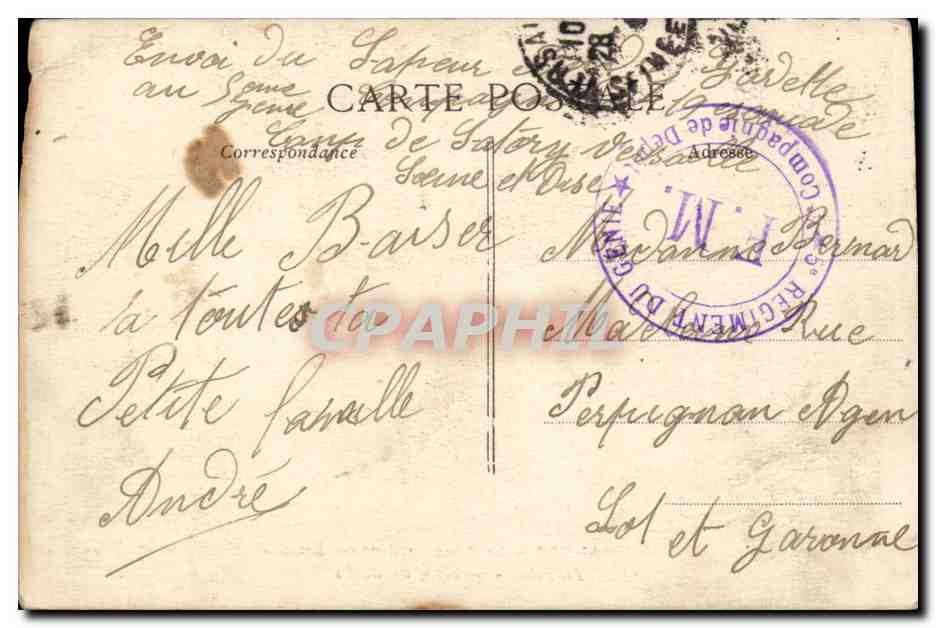 Envoi du Sapeur
au 5eme
CARTE POSTALE
Camp de Satory Versaille
Correspondance
Adresse
Seine et Oise
Mille Baiser
à toutes ta
Petite famille
André
Madame Bernard
Rue
Perpignan Agen
Lot et Garonne
5e REGIMENT DU GENIE ★
Compagnie de
F. M.
10
28
CPAPHIL